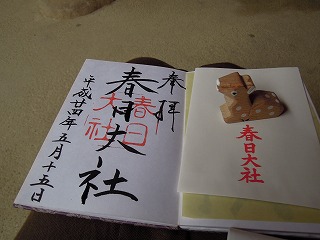 奉拝
春日大社
春日
大社
平成廿四年五月十五日
春日大社